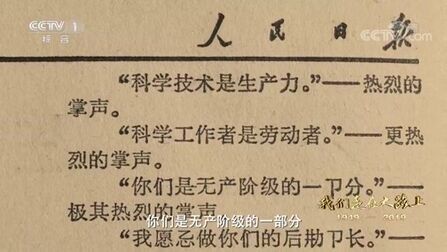 CCTV 1
综合
人民日报
CCTV
“科学技术是生产力。”——热烈的
掌声。
“科学工作者是劳动者。”——更热
烈的掌声。
“你们是无产阶级的一部分。”——
极其热烈的掌声
你们是无产阶级的一部分
我们走在大路上
1949—2019
“我愿意做你们的后勤部长。”